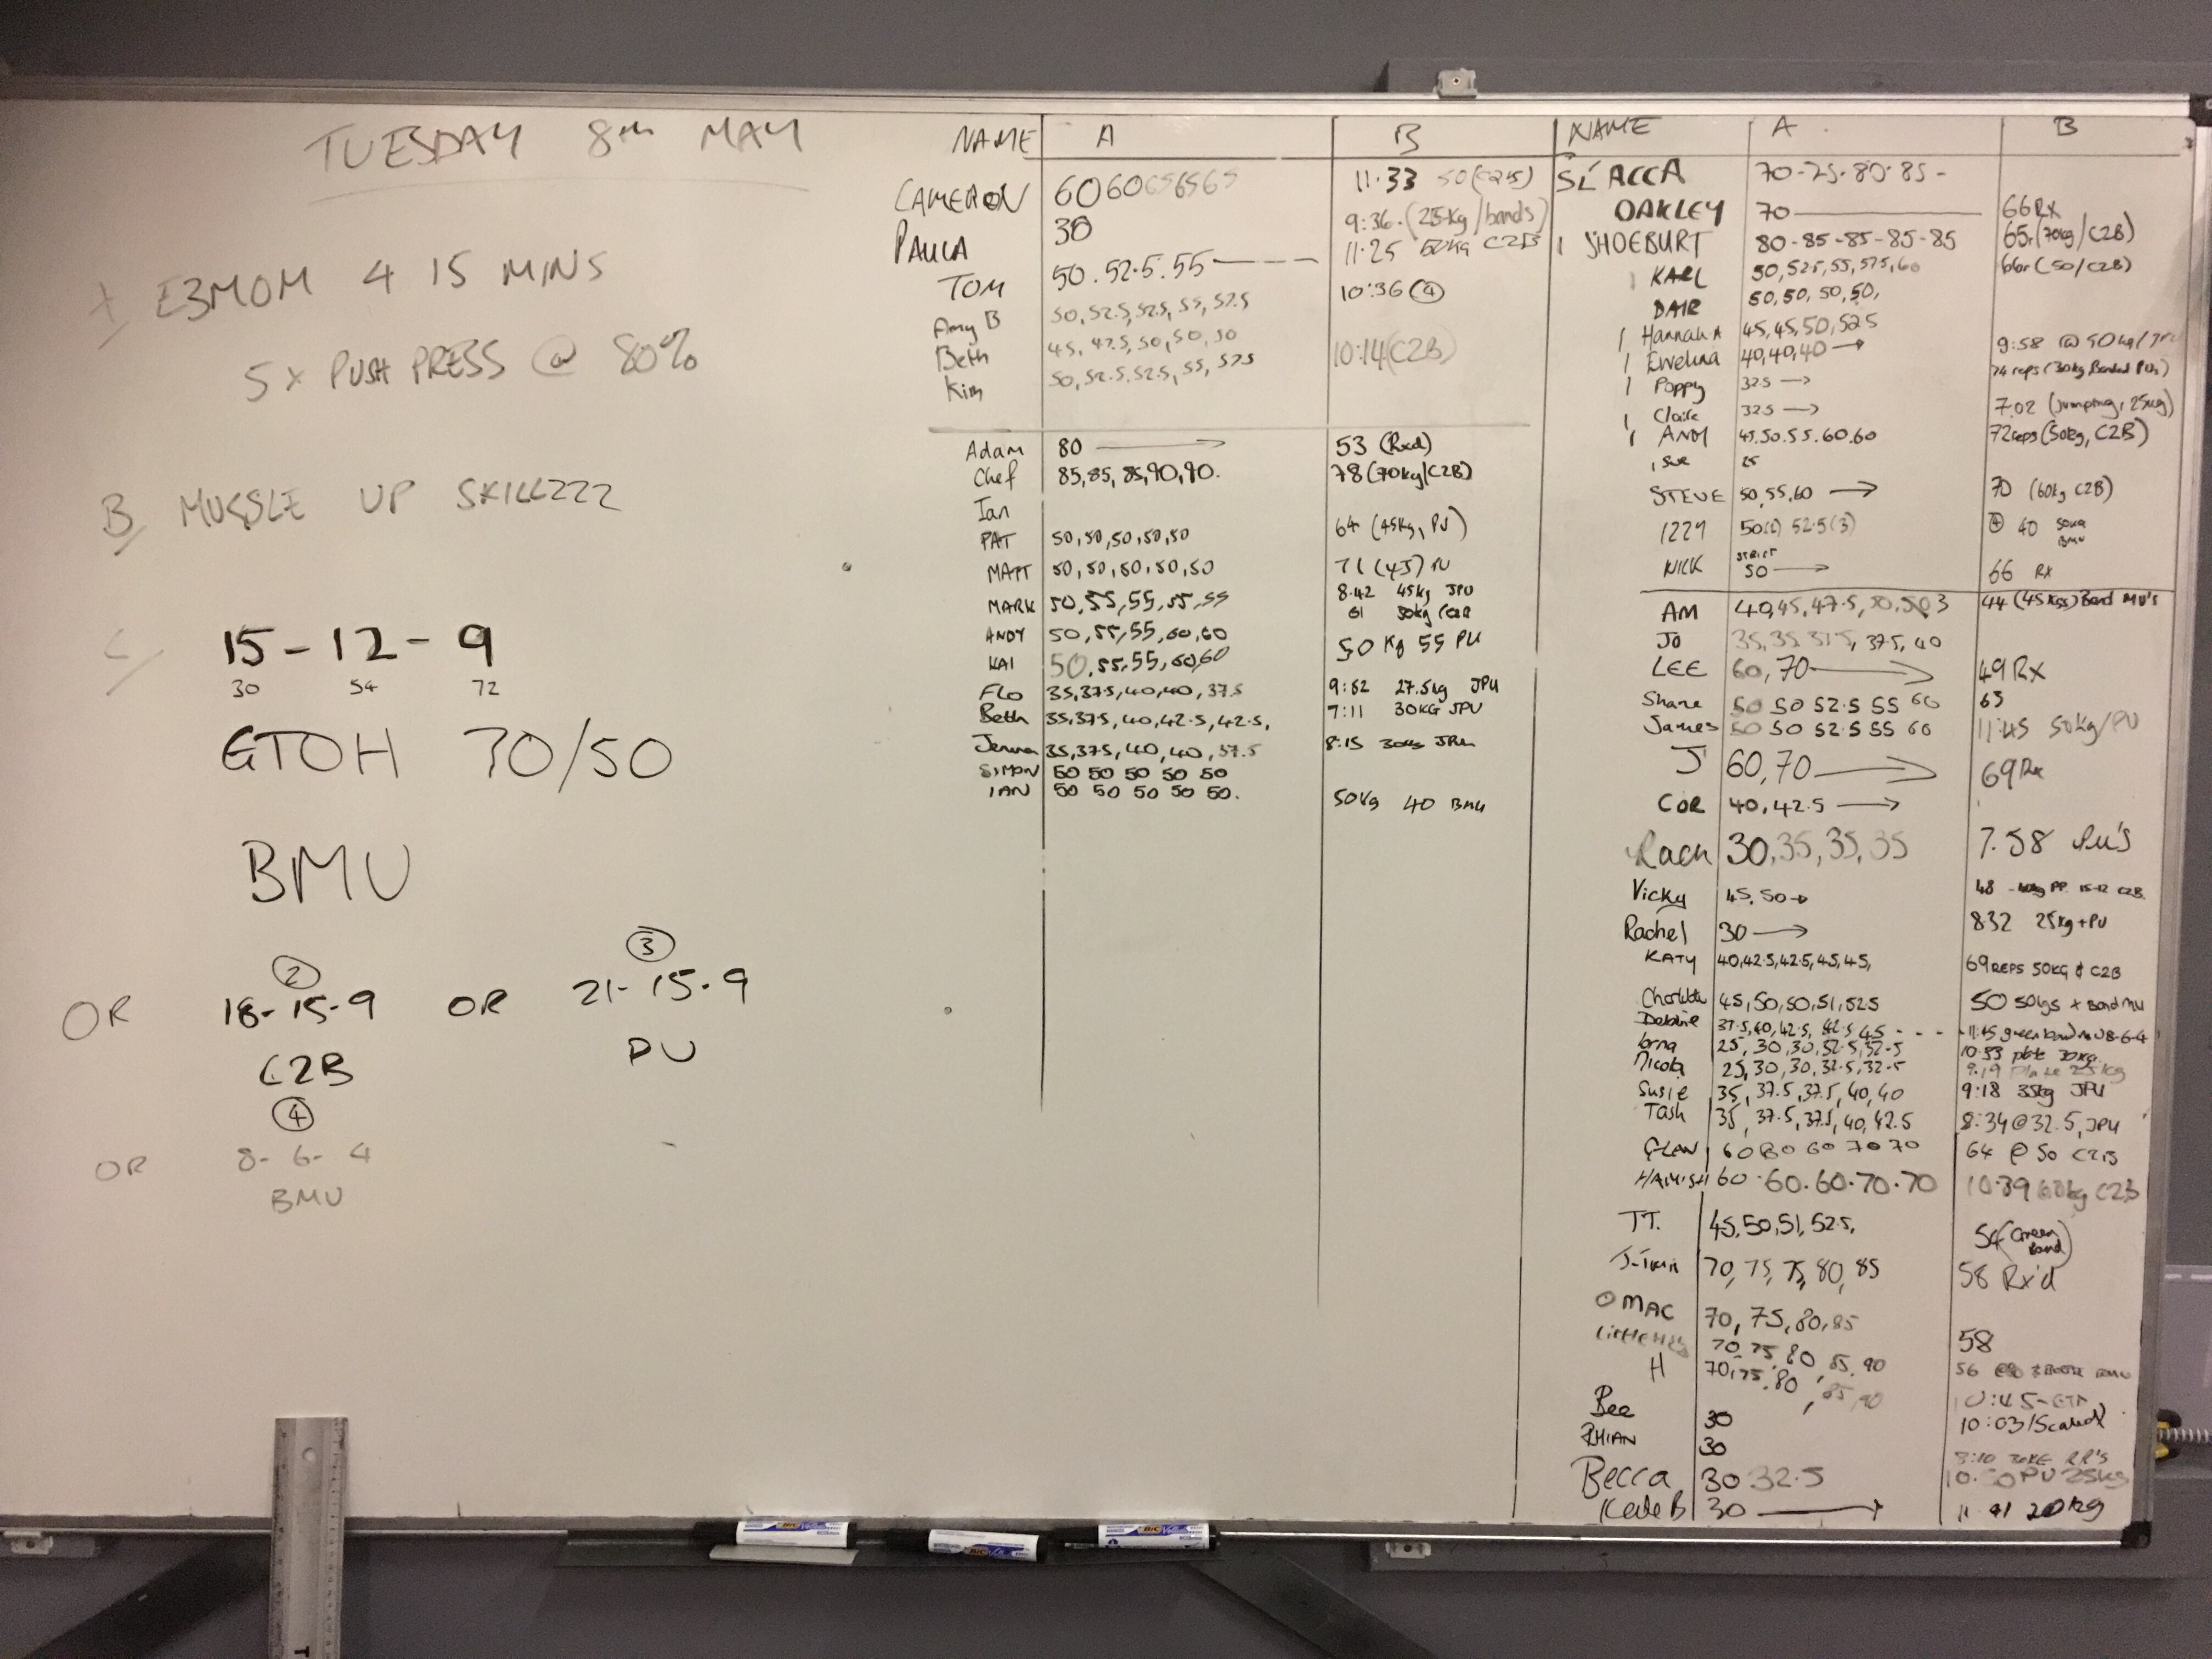 TUESDAY 8TH MAY
E3MOM 4 15 MINS
5 x PUSH PRESS @ 80%
B, MUSSLE UP SKILLZZZ
C/ 15 - 12 - 9
30 54 72
GTOH 70/50
BMU
② ③
OR 18-15-9 OR 21-15-9
C2B PU
④
OR 8-6-4
BMU
NAME A B
CAMERON 60 60 65 65 65 11.33
PAULA 30 9:36 (25kg/bands)
TOM 50. 52.5. 55 11.25 50kg C2B
Amy B 50, 52.5, 52.5, 55, 57.5 10:36 ④
Beth 45, 47.5, 50, 50, 50
Kim 50, 52.5, 52.5, 55, 57.5 10:14 (C2B)
Adam 80 → 53 (Rxd)
Chef 85, 85, 85, 90, 90. 78 (70kg/C2B)
Ian
PAT 50, 50, 50, 50, 50 64 (45kg, PU)
MATT 50, 50, 50, 50, 50 71 (45) PU
MARK 50, 55, 55, 55, 55 8.42 45kg JPU
ANDY 50, 55, 55, 60, 60 61 50kg
KAI 50, 55, 55, 60, 60 50 Kg 55 PU
FLO 35, 37.5, 40, 40, 37.5 9:52 27.5kg JPU
Beth 35, 37.5, 40, 42.5, 42.5, 7:11 30KG JPU
Jenna 35, 37.5, 40, 40, 37.5 8:15 30kg
SIMON 50 50 50 50 50
IAN 50 50 50 50 50. 50kg 40 BMU
NAME A B
ACCA 70-75-80-85-
OAKLEY 70 66 RX
SHOEBURT 80-85-85-85-85 65r (70kg/C2B)
KARL 50, 52.5, 55, 57.5, 60 66r (50/C2B)
DAIR 50, 50, 50, 50,
Hannah A 45, 45, 50, 52.5
Ewelina 40, 40, 40 → 9:58 @ 50kg
Poppy 32.5 → 74 reps (30kg Banded PUs)
Claire 32.5 → 7.02 (jumping, 25kg)
ANDY 45. 50. 55. 60. 60 72 reps (50kg, C2B)
Sue 25
STEVE 50, 55, 60 → 70 (60kg C2B)
IZZY 50(2) 52.5(3) ④ 40 50kg BMU
NICK STRICT 50 → 66 RX
AM 40, 45, 47.5, 50, 50 3 44 (45kgs) Band MU's
JO 35, 35, 37.5, 37.5, 40
LEE 60, 70 → 49 Rx
Shane 50 50 52.5 55 60 63
James 50 50 52.5 55 60 11:45 50kg/PU
J 60, 70 → 69 Rx
COR 40, 42.5 →
Rach 30, 35, 35, 35 7.58 PU'S
Vicky 45, 50 → 48 - 40kg PP. 15-12 C2B
Rachel 30 → 8.32 25kg + PU
KATY 40, 42.5, 42.5, 45, 45, 69 REPS 50KG & C2B
Charlotte 45, 50, 50, 51, 52.5 50 50kgs + Band MU
Debbie 37.5, 40, 42.5, 42.5, 45 - - - 11:45 green band mu 8-6-4
Lorna 25, 30, 30, 32.5, 32.5 10:53 plate 30kg
Nicola 25, 30, 30, 32.5, 32.5 9.19 Plate 25kg
Susie 35, 37.5, 37.5, 40, 40 9:18 35kg JPU
Tash 35, 37.5, 37.5, 40, 42.5 8:34 @ 32.5, JPU
GLAN 60 60 60 70 70 64 @ 50 C2B
HAMISH 60. 60. 60. 70. 70 10.39 60kg C2B
TT. 45, 50, 51, 52.5, 54 (Green Band)
70, 75, 75, 80, 85 58 Rx'd
O MAC 70, 75, 80, 85
70, 75, 80, 85, 90 58
H 70, 75, 80, 85, 90 56 BMU
Bee 30 10:45
RHIAN 30 10:03/Scaled
Becca 30 32.5 PU 25kg
Kate B 30 → 11.41 20kg